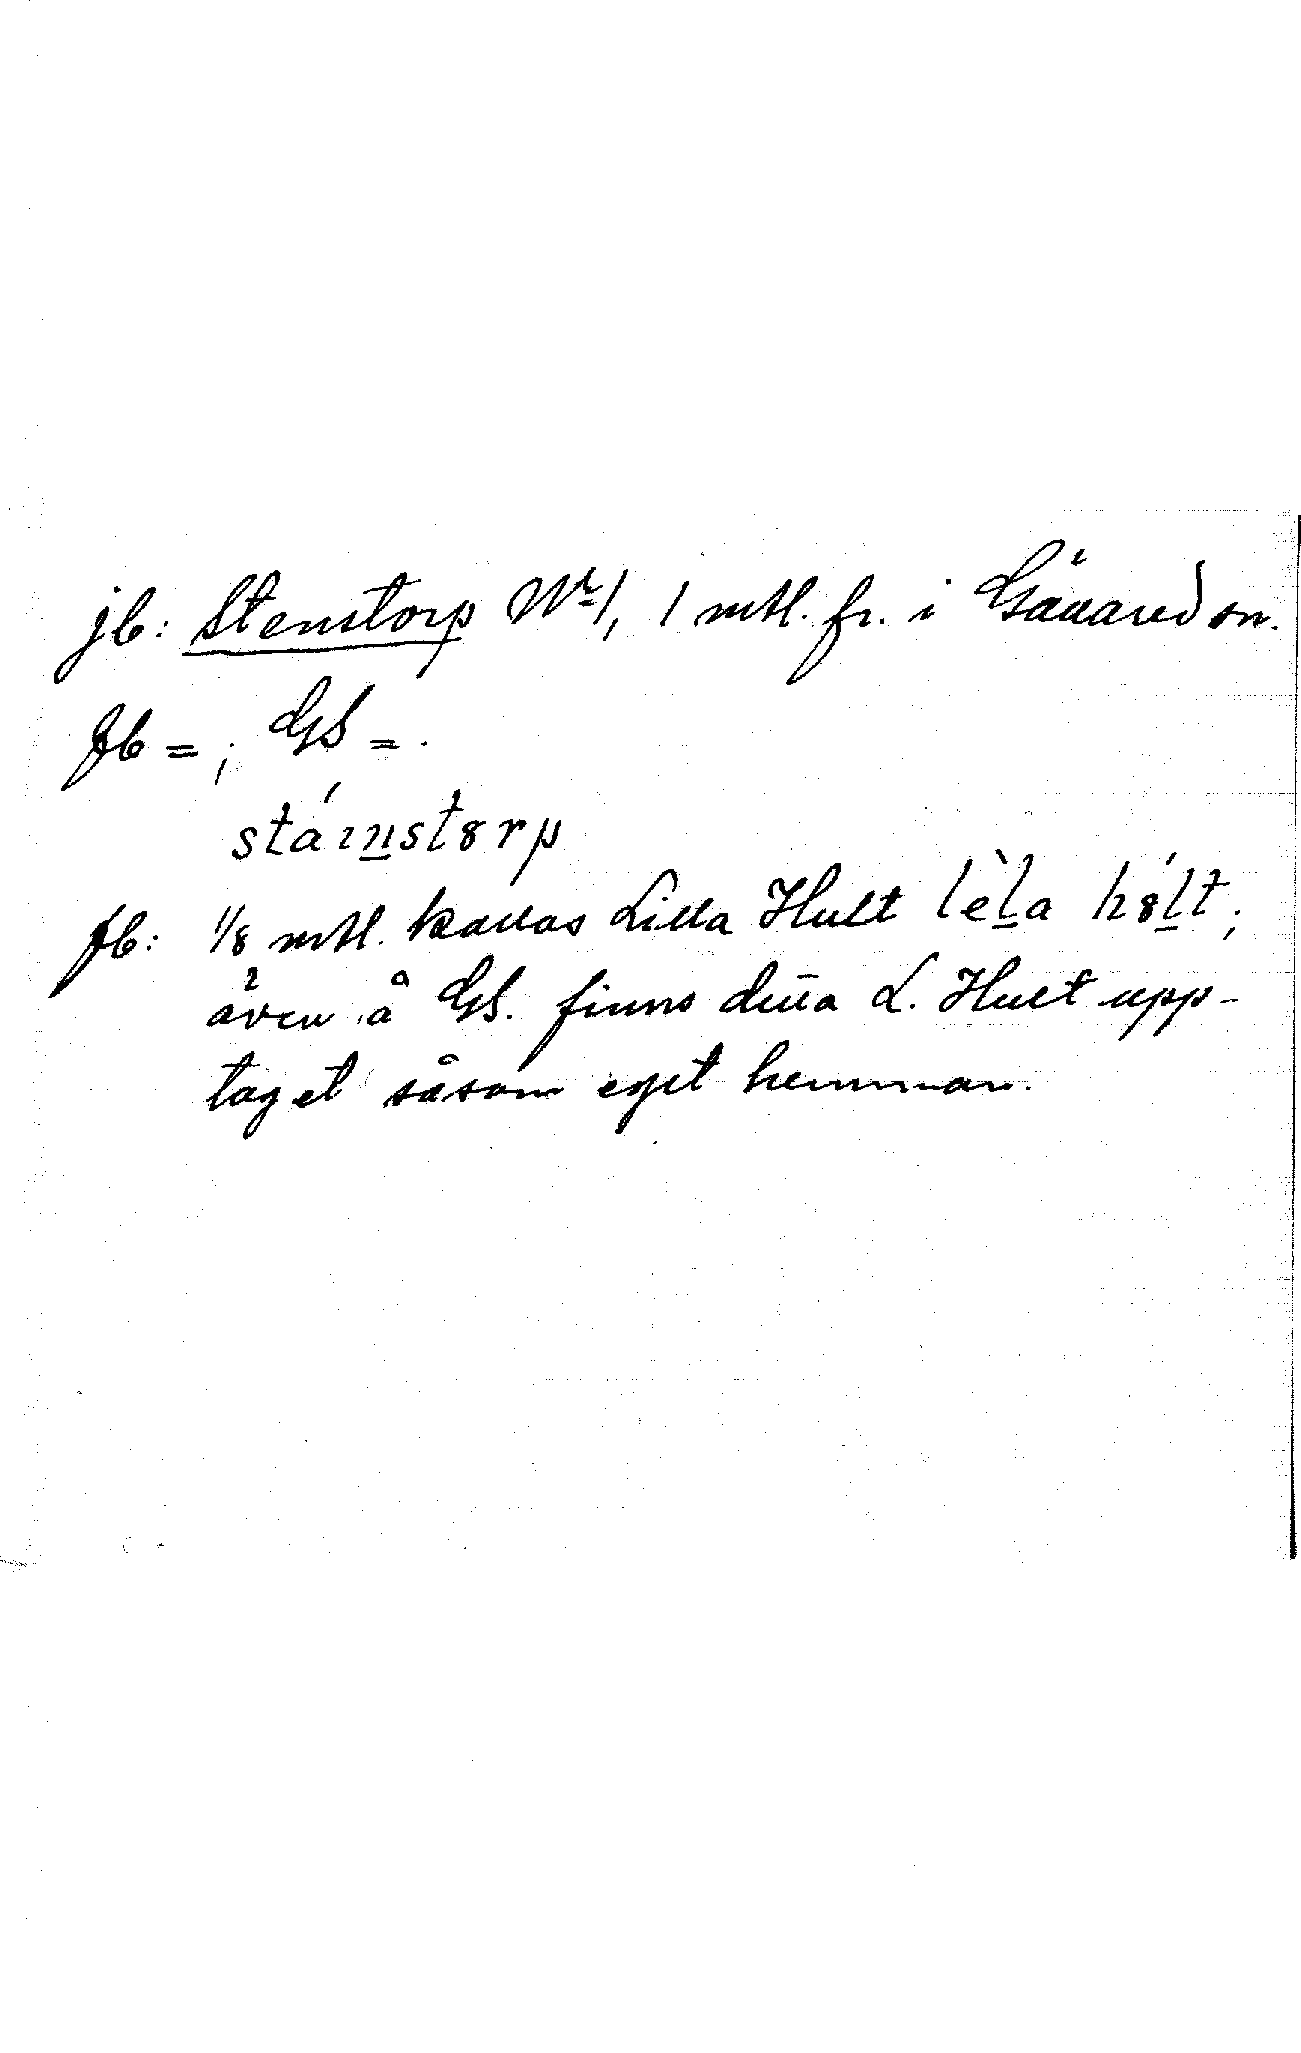 jb: Stenstorp Nr 1, 1 mtl. fr. i Gällared sn.
fb = ; GS = .
stáɪn̲st8rp
fb: 1/8 mtl. kallas Lilla Hult lèl̲a h8́l̲t;
även å GS. finns detta L. Hult upp-
taget såsom eget hemman.